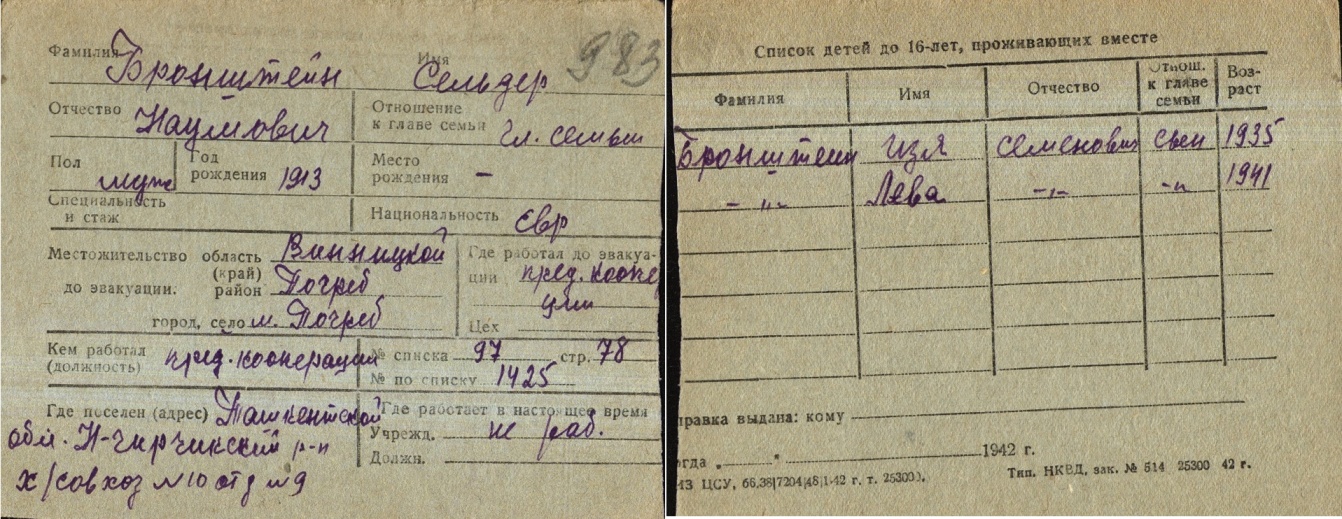 983
Фамилия Бронштейн Имя Сельдер
Отчество Наумович Отношение к главе семьи Гл. семьи
Пол муж Год рождения 1913 Место рождения —
Специальность и стаж Национальность Евр
Местожительство до эвакуации. область (край) Винницкой
район Погреб
город, село м. Погреб
Где работал до эвакуации пред. коопе
ции
Цех
Кем работал (должность) пред. кооперации
№ списка 97 стр. 78
№ по списку 1425
Где поселен (адрес) Ташкентской
обл. Н-Чирчикский р-н
х/совхоз №10 отд №9
Где работает в настоящее время
Учрежд. не раб.
Должн.
Список детей до 16-лет, проживающих вместе
Фамилия Имя Отчество Отнош. к главе семьи Возраст
Бронштеин Изя Семенович сын 1935
– „– Лева –„– –„ 1941
правка выдана: кому
огда „ “ 1942 г.
ИЗ ЦСУ, 66,38|7204|48|1-42 г. т. 25300. Тип. НКВД, зак. № 514 25300 42 г.